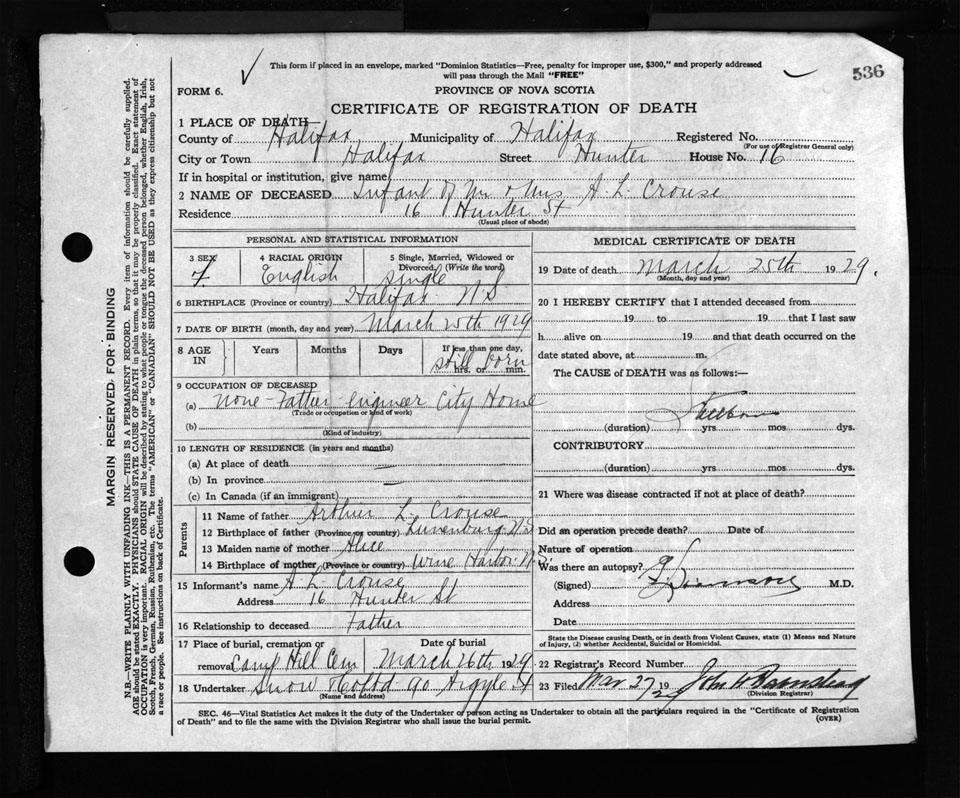 This form if placed in an envelope, marked "Dominion Statistics—Free, penalty for improper use, $300," and properly addressed
will pass through the Mail "FREE"
536
FORM 6.
PROVINCE OF NOVA SCOTIA
CERTIFICATE OF REGISTRATION OF DEATH
1 PLACE OF DEATH
County of Halifax Municipality of Halifax Registered No.
(For use of Registrar General only)
City or Town Halifax Street Hunter House No. 16
If in hospital or institution, give name
2 NAME OF DECEASED Infant of Mr & Mrs A. L. Crouse
Residence 16 Hunter St
(Usual place of abode)
PERSONAL AND STATISTICAL INFORMATION
3 SEX 4 RACIAL ORIGIN 5 Single, Married, Widowed or
Divorced (Write the word)
F English Single
6 BIRTHPLACE (Province or country) Halifax N.S.
7 DATE OF BIRTH (month, day and year) March 25th 1929
8 AGE IN Years Months Days If less than one day,
hrs. or min.
still born
9 OCCUPATION OF DECEASED
(a) None - Father Engineer City Home
(Trade or occupation or kind of work)
(b)
(Kind of industry)
10 LENGTH OF RESIDENCE (in years and months)
(a) At place of death —
(b) In province —
(c) In Canada (if an immigrant)
Parents
11 Name of father Arthur L. Crouse
12 Birthplace of father (Province or country) Lunenburg N.S
13 Maiden name of mother Alice
14 Birthplace of mother (Province or country) Wine Harbor N.S.
15 Informant's name A L Crouse
Address 16 Hunter St
16 Relationship to deceased Father
17 Place of burial, cremation or Date of burial
removal Camp Hill Cem March 26th 1929
18 Undertaker Snow & Co Ltd 90 Argyle St
(Name and address)
MEDICAL CERTIFICATE OF DEATH
19 Date of death March 25th 1929.
(Month, day and year)
20 I HEREBY CERTIFY that I attended deceased from
19 to 19 that I last saw
h alive on 19 and that death occurred on the
date stated above, at m.
The CAUSE of DEATH was as follows:—
Stillborn
(duration) yrs mos dys.
CONTRIBUTORY
(duration) yrs mos dys.
21 Where was disease contracted if not at place of death?
Did an operation precede death? Date of
Nature of operation
Was there an autopsy?
(Signed) M.D.
Address
Date
State the Disease causing Death, or in death from Violent Causes, state (1) Means and Nature
of Injury, (2) whether Accidental, Suicidal or Homicidal.
22 Registrar's Record Number
23 Filed Mar 27 1929 John W
(Division Registrar)
SEC. 46—Vital Statistics Act makes it the duty of the Undertaker or person acting as Undertaker to obtain all the particulars required in the "Certificate of Registration
of Death" and to file the same with the Division Registrar who shall issue the burial permit.
(OVER)
MARGIN RESERVED FOR BINDING
N.B.—WRITE PLAINLY WITH UNFADING INK—THIS IS A PERMANENT RECORD. Every item of information should be carefully supplied.
AGE should be stated EXACTLY. PHYSICIANS should STATE CAUSE OF DEATH in plain terms, so that it may be properly classified. Exact statement of
OCCUPATION is very important. RACIAL ORIGIN will be described by stating to what people or tongue the deceased person belonged, whether English, Irish,
Scotch, French, German, Russian, Ruthenian, etc. The terms "AMERICAN" or "CANADIAN" SHOULD NOT BE USED as they express citizenship but not
a race or people. See instructions on back of Certificate.